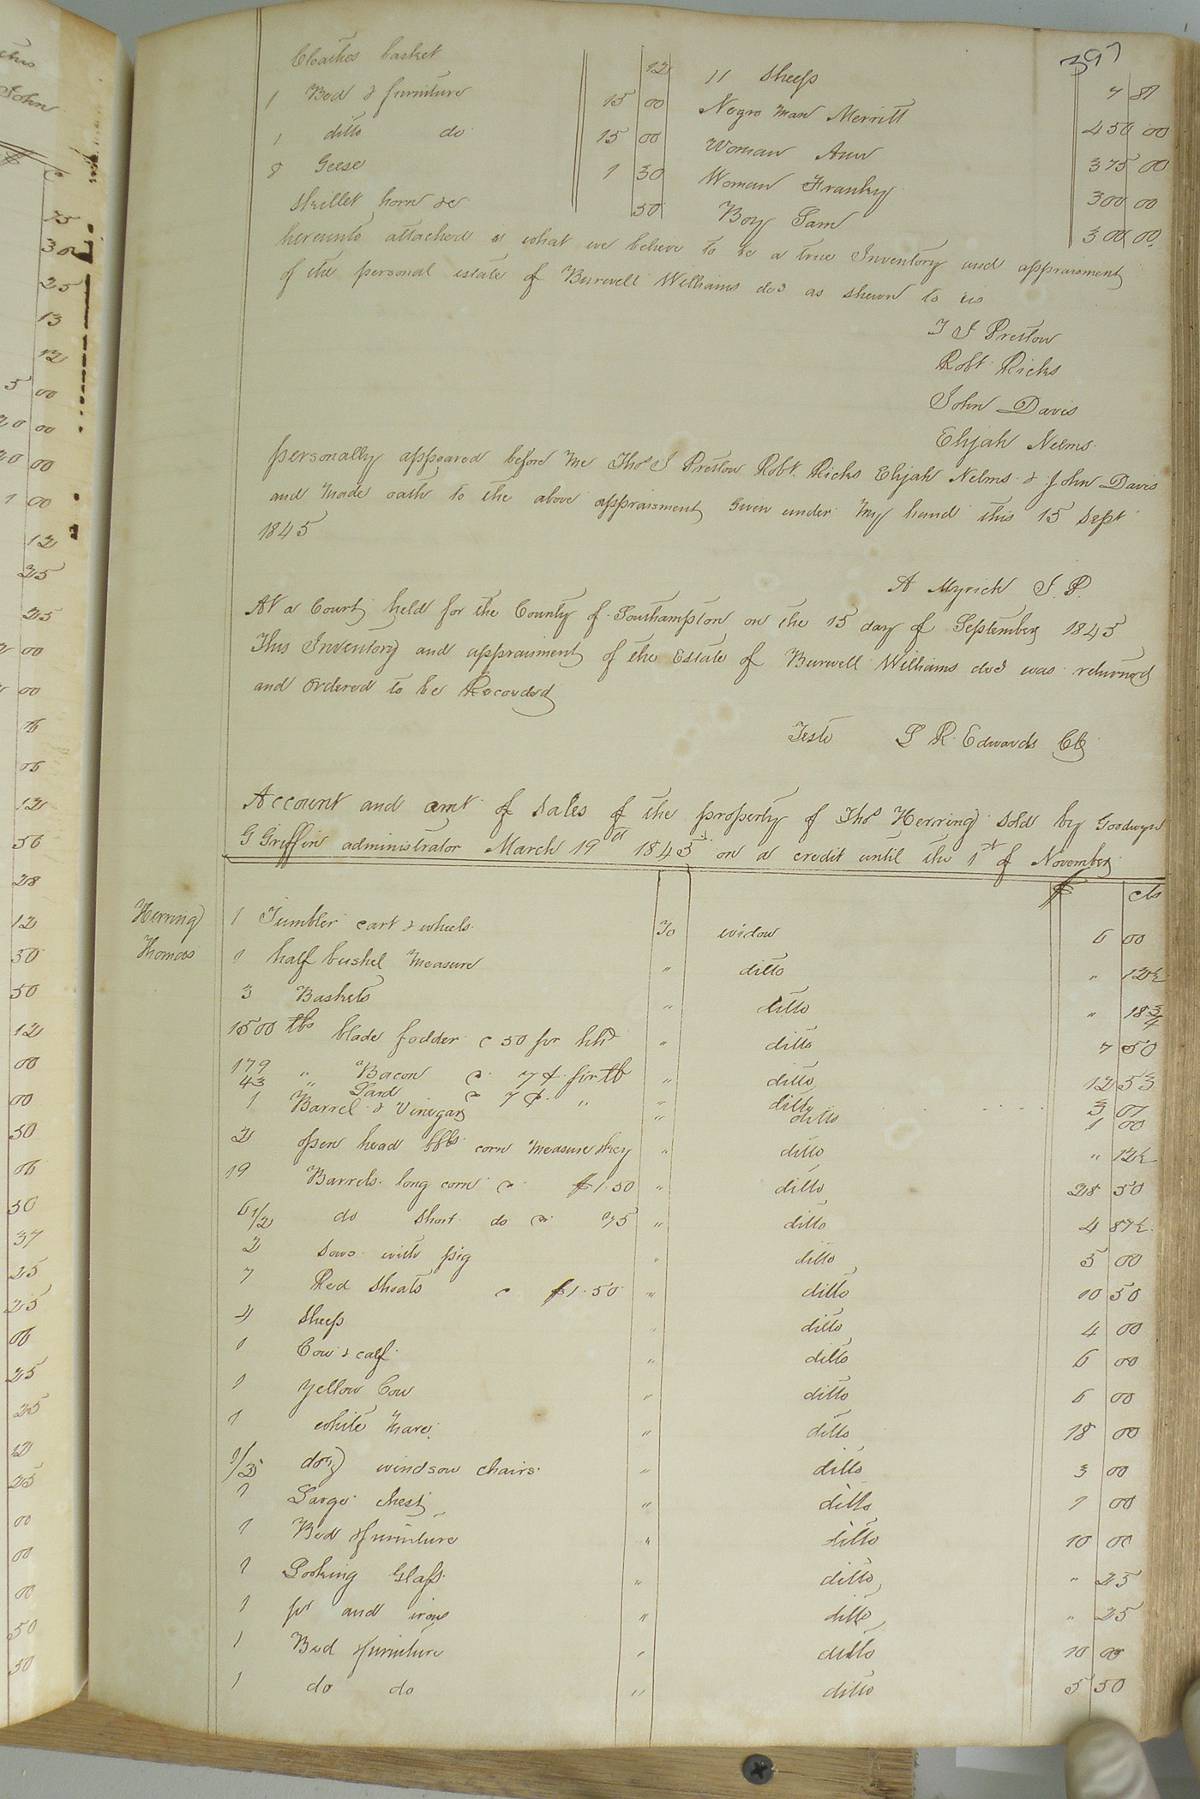 397
Cloathes basket 12 11 Sheep 7 87
1 Bed & furniture 15 00 Negro man Merritt 450 00
1 ditto do 15 00 Woman Ann 375 00
8 Geese 1 50 Woman Franky 300 00
Skillet horn &c 50 Boy Sam 300 00
hereunto attached is what we believe to be a true Inventory and appraisment
of the personal estate of Burwell Williams decd as shewn to us
T J Preston
Robt Ricks
John Davis
Elijah Nelms
personally appeared before me Thos J Preston Robt Ricks Elijah Nelms & John Davis
and made oath to the above appraisment Given under my hand this 15 Sept
1845
A Myrick J. P.
At a Court held for the County of Southampton on the 15 day of September 1845
This Inventory and appraisment of the Estate of Burwell Williams decd was returned
and ordered to be Recorded
Teste L R Edwards Clk
Account and amt of Sales of the property of Thos Herring sold by Goodwyn
G Griffin administrator March 19th 1845 on a credit until the 1st of November
$ cts
Herring
Thomas
1 Tumbler cart & wheels To widow 6 00
1 half bushel measure " ditto " 12½
3 Baskets " ditto " 18¾
1500 lbs blade fodder @ 50 per hhd " ditto 7 50
179 " Bacon @ 7¢ per lb " ditto 12 53
43 " Lard @ 7¢ " " ditto 3 01
1 Barrel & Vinegar " ditto 1 00
2 open head bbls corn measure " ditto " 12½
19 Barrels long corn @ $1.50 " ditto 28 50
6 1/2 do short do @ 75 " ditto 4 87½
2 sows with pig " ditto 5 00
7 Red shoats @ $1.50 " ditto 10 50
4 sheep " ditto 4 00
1 Cow & calf " ditto 6 00
1 Yellow Cow " ditto 6 00
1 white mare " ditto 18 00
1/2 doz windsow chairs " ditto 3 00
1 Large chest " ditto 1 00
1 Bed & furniture " ditto 10 00
1 Looking Glass " ditto " 25
1 pr and irons " ditto " 25
1 Bed & furniture " ditto 10 00
1 do do " ditto 5 50